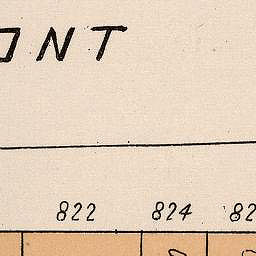 ONT
822 824 82